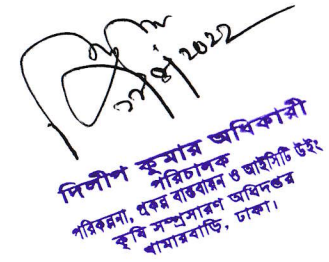 দিলীপ কুমার অধিকারী
পরিচালক
পরিকল্পনা, প্রকল্প বাস্তবায়ন ও আইসিটি উইং
কৃষি সম্প্রসারণ অধিদপ্তর
খামারবাড়ি, ঢাকা।